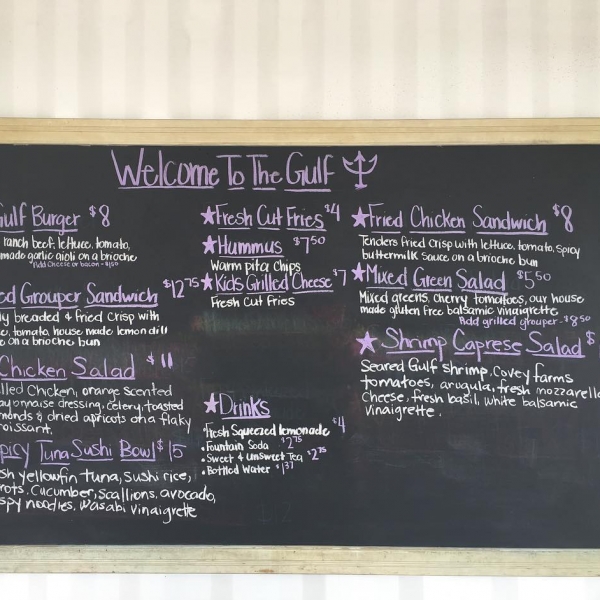 Welcome To The Gulf
Gulf Burger $8
ranch beef, lettuce, tomato,
made garlic aioli on a brioche
*Add Cheese or bacon - $1.50
Grouper Sandwich $12.75
breaded & fried crisp with
tomato, house made lemon dill
on a brioche bun
Chicken Salad $11
Chicken, orange scented
mayonnaise dressing, celery, toasted
& dried apricots on a flaky
croissant.
Spicy Tuna Sushi Bowl $15
yellowfin tuna, sushi rice,
Cucumber, scallions, avocado,
noodles, wasabi vinaigrette
★Fresh Cut Fries $4
★Hummus $7.50
Warm pita chips
★Kids Grilled Cheese $7
Fresh Cut Fries
★Drinks
•Fresh Squeezed lemonade $4
•Fountain Soda $2.75
•Sweet & Unsweet Tea $2.75
•Bottled Water $1.37
★Fried Chicken Sandwich $8
Tenders fried crisp with lettuce, tomato, spicy
buttermilk sauce on a brioche bun
★Mixed Green Salad $5.50
Mixed greens, cherry tomatoes, our house
made gluten free balsamic vinaigrette
Add grilled grouper - $8.50
★Shrimp Caprese Salad $
Seared Gulf shrimp, Covey farms
tomatoes, arugula, fresh mozzarella
Cheese, fresh basil, white balsamic
Vinaigrette.